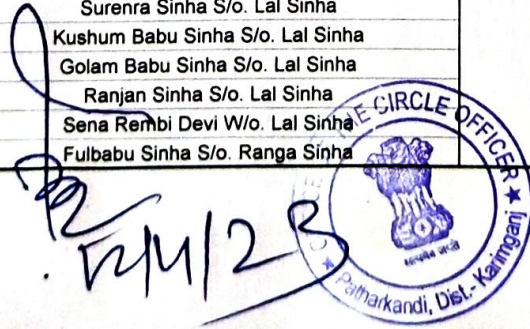 Surenra Sinha S/o. Lal Sinha
Kushum Babu Sinha S/o. Lal Sinha
Golam Babu Sinha S/o. Lal Sinha
Ranjan Sinha S/o. Lal Sinha
Sena Rembi Devi W/o. Lal Sinha
Fulbabu Sinha S/o. Ranga Sinha
THE CIRCLE OFFICER
Patharkandi, Dist.- Karimganj